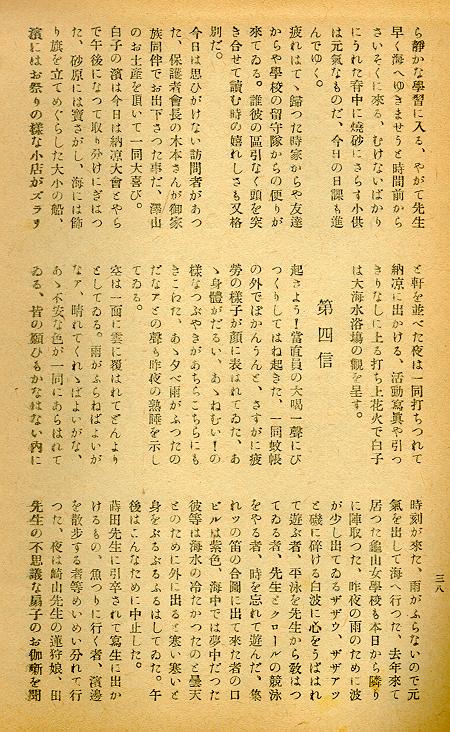 ら靜かな學習に入る、やがて先生
早く海へゆきませうと時間前から
さいそくに來る、むけないばかり
にうれた脊中に燒砂にさらす小供
は元氣なものだ、今日の日課も進
んでゆく。
疲れはてゝ歸つた時家からや友達
からや學校の留守隊からの便りが
來てゐる。誰彼の區引なく頭を突
き合せて讀む時の嬉れしさも又格
別だ。
今日は思ひがけない訪問者があつ
た、保護者會長の木本さんが御家
族同伴でお出下さつた事だ、澤山
のお土産を頂いて一同大喜び。
白子の濱は今日は納凉大會とやら
で午後になつて取り分けにぎはつ
た、砂原には寳さがし、海には飾
り旗を立てめぐらした大小の船、
濱にはお祭りの樣な小店がズラリ
と軒を並べた夜は一同打ちつれて
納凉に出かける、活動寫眞や引つ
きりなしに上る打ち上花火で白子
は大海水浴場の觀を呈す。
第四信
起さよう!當直員の大喝一聲にび
つくりしてはね起きた、一同蚊帳
の外でぽかんうんと、さすがに疲
勞の樣子が顏に表はれてゐた、あ
ゝ身體がだるい、あゝねむい!の
樣なつぶやきがあちらこちらにも
きこわた、あゝ夕べ雨がふつたの
だなアとの聲も昨夜の熟睡を示し
てゐる。
空は一面に雲に覆はれてどんより
としてゐる。雨がふらねばよいが
なア、晴れてくれゝばよいがな、
あゝ不安な色が一同にあらはれて
ゐる、皆の願ひもかなはない內に
三八
時刻が來た、雨がふらないので元
氣を出して海へ行つた、去年來て
居つた龜山女學校も本日から隣り
に陣取つた、昨夜の雨のために波
が少し出てゐるザザウ、ザザアツ
と磯に碎ける白波に心をうばはれ
て遊ぶ者、平泳を先生から敎はつ
てゐる者、先生とクロールの競泳
をやる者、時を忘れて遊んだ、集
れツの笛の合圖に出て來た者の口
ビルは紫色、海中では夢中だつた
彼等は海水の冷たかつたのと曇天
とのために外に出ると寒い寒いと
身をぶるぶるふるはしてゐた。午
後はこんなために中止した。
蒔田先生に引卒されて寫生に出か
けるもの、魚つりに行く者、濱邊
を散步する者等めいめい分れて行
つた、夜は崎山先生の蓮狩娘、田
先生の不思議な扇子のお伽噺を聞